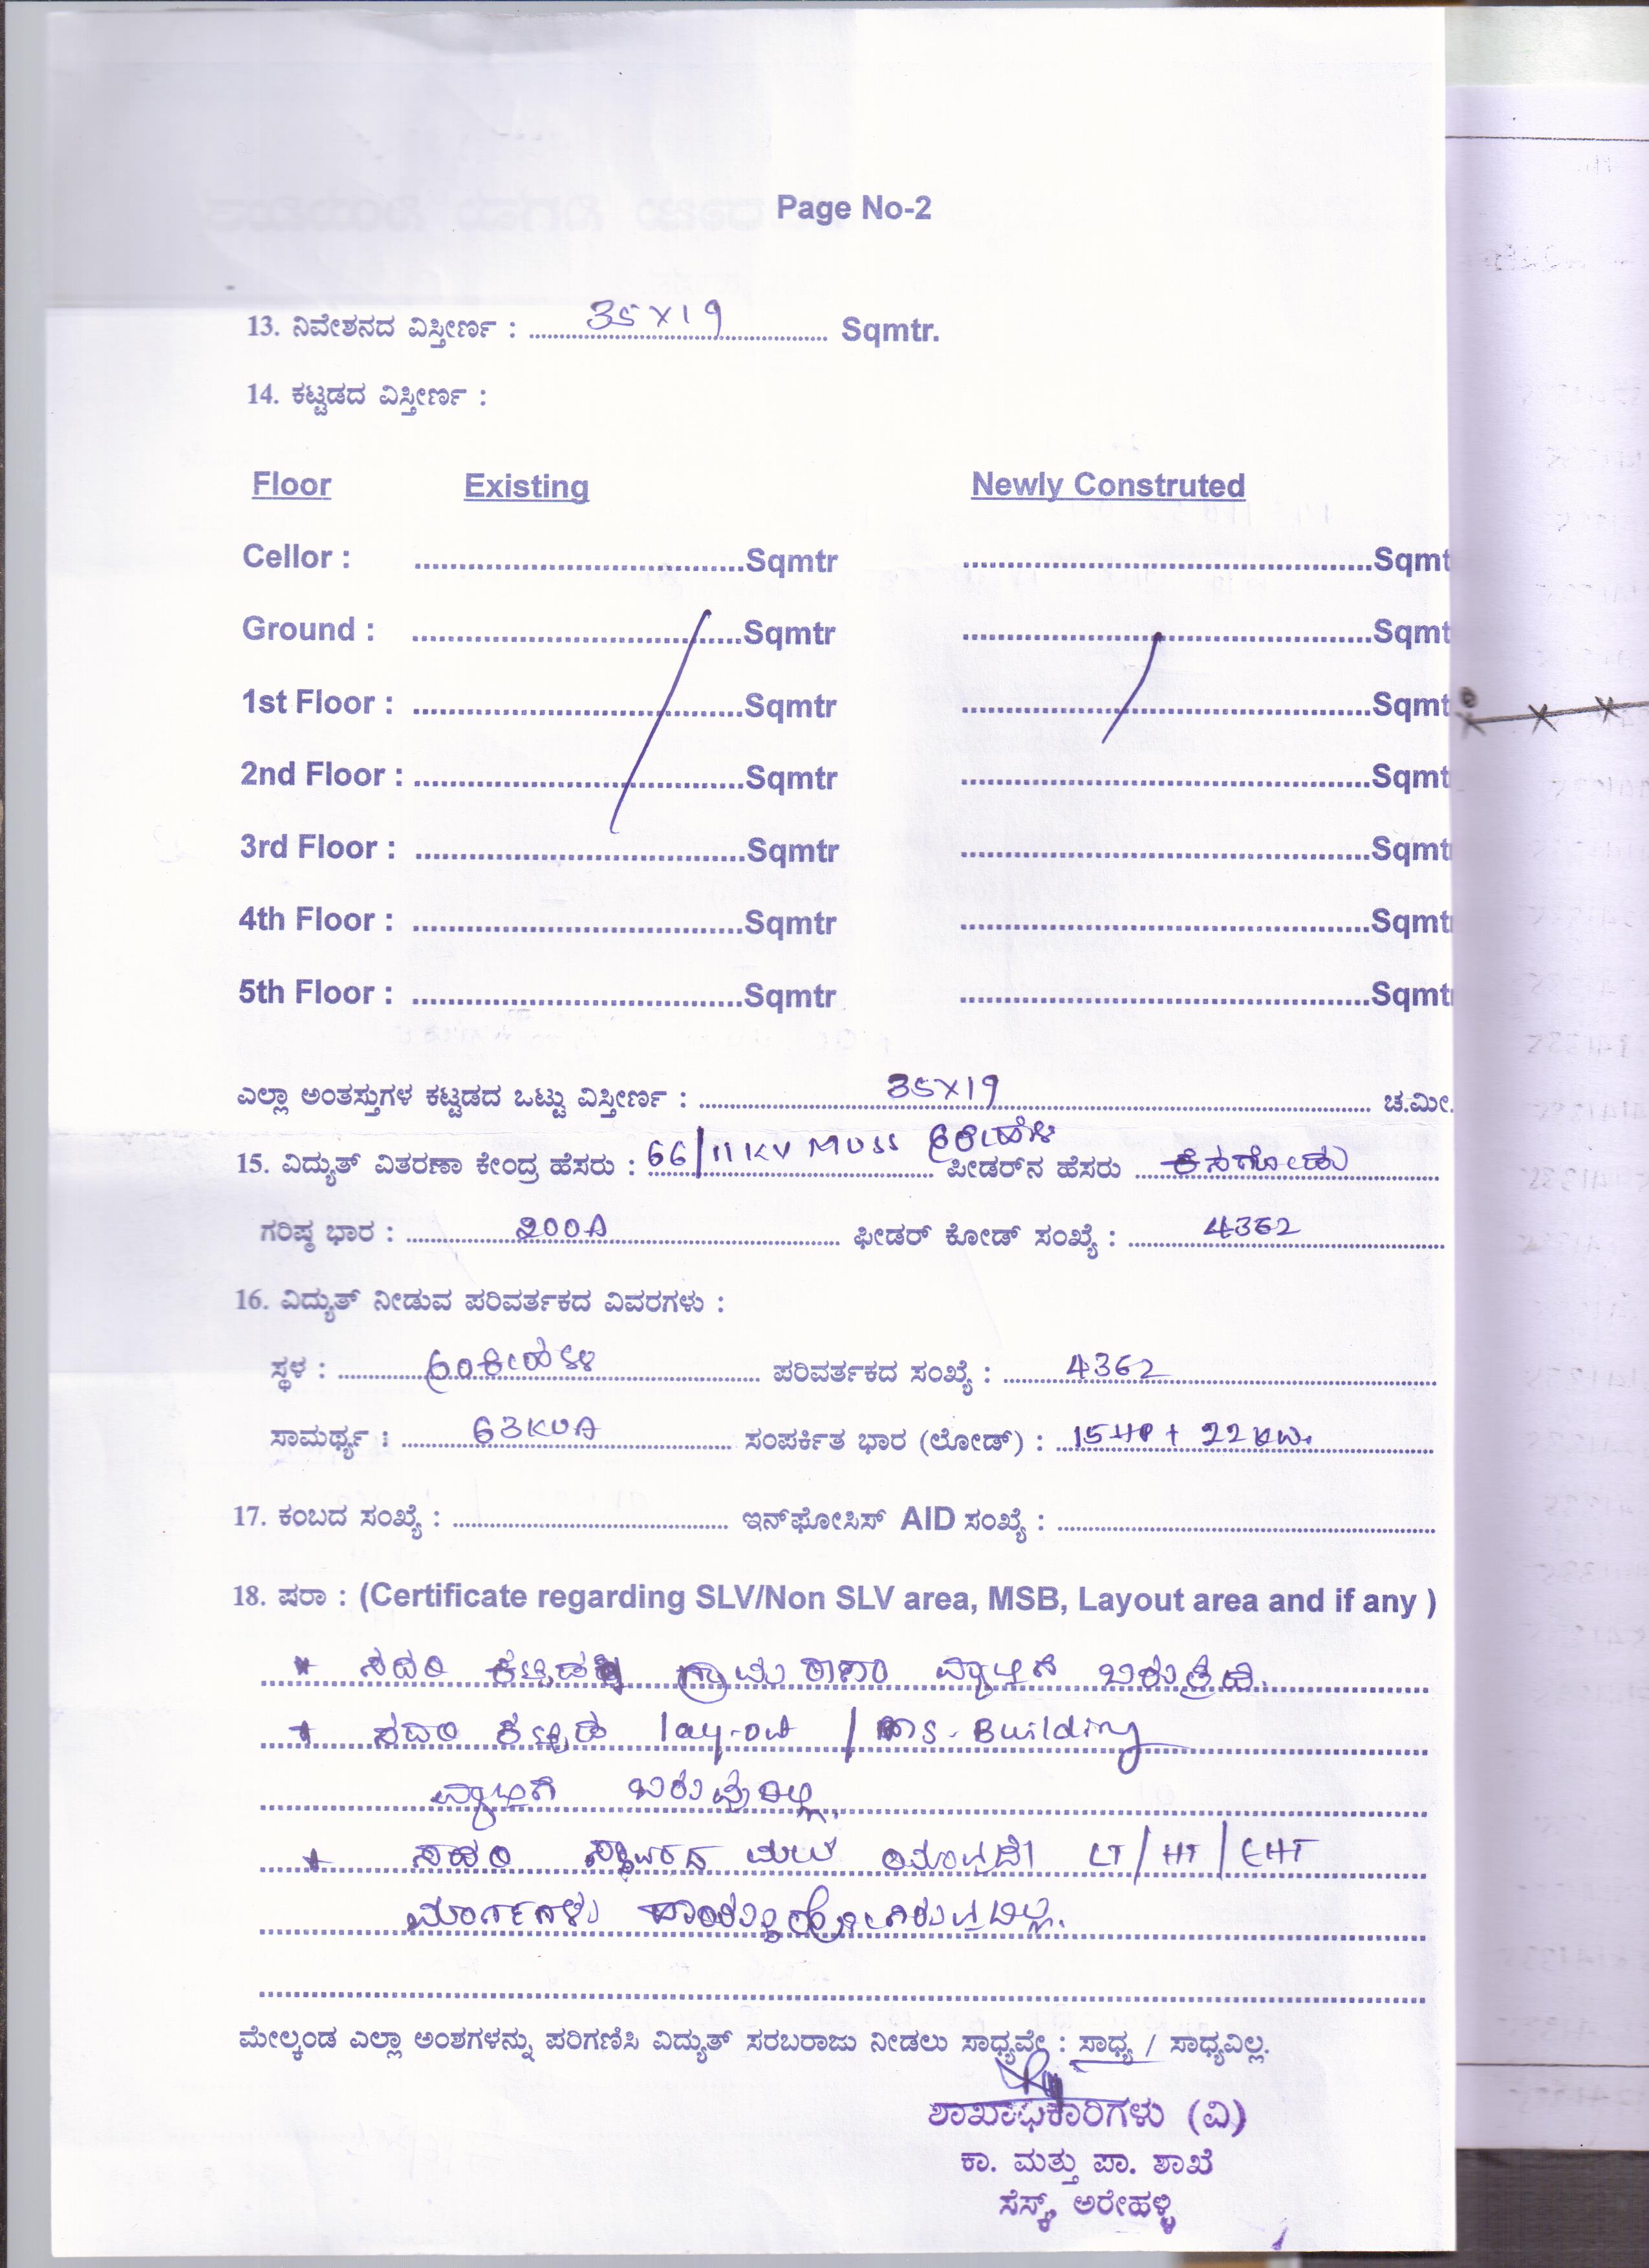 Page No-2
13. ನಿವೇಶನದ ವಿಸ್ತೀರ್ಣ : 35×19 Sqmtr.
14. ಕಟ್ಟಡದ ವಿಸ್ತೀರ್ಣ :
Floor Existing Newly Construted
Cellor : Sqmtr Sqmt
Ground : Sqmtr Sqmt
1st Floor : Sqmtr Sqmt
2nd Floor : Sqmtr Sqmt
3rd Floor : Sqmtr Sqmt
4th Floor : Sqmtr Sqmt
5th Floor : Sqmtr Sqmt
ಎಲ್ಲಾ ಅಂತಸ್ತುಗಳ ಕಟ್ಟಡದ ಒಟ್ಟು ವಿಸ್ತೀರ್ಣ : 35×19 ಚ.ಮೀ.
15. ವಿದ್ಯುತ್ ವಿತರಣಾ ಕೇಂದ್ರ ಹೆಸರು : 66/11KV MUSS ಫೀಡರ್‌ನ ಹೆಸರು
ಗರಿಷ್ಠ ಭಾರ : 200A ಫೀಡರ್ ಕೋಡ್ ಸಂಖ್ಯೆ : 4362
16. ವಿದ್ಯುತ್ ನೀಡುವ ಪರಿವರ್ತಕದ ವಿವರಗಳು :
ಸ್ಥಳ : ಪರಿವರ್ತಕದ ಸಂಖ್ಯೆ : 4362
ಸಾಮರ್ಥ್ಯ : 63KVA ಸಂಪರ್ಕಿತ ಭಾರ (ಲೋಡ್) : 15HP + 22KW.
17. ಕಂಬದ ಸಂಖ್ಯೆ : ಇನ್‌ಫೋಸಿಸ್ AID ಸಂಖ್ಯೆ :
18. ಷರಾ : (Certificate regarding SLV/Non SLV area, MSB, Layout area and if any )
* ಸದರಿ ಗ್ರಾಮ ಠಾಣಾ ವ್ಯಾಪ್ತಿಗೆ ಬರುತ್ತದೆ.
* ಸದರಿ ಕಟ್ಟಡ lay-out / MS-Building
ವ್ಯಾಪ್ತಿಗೆ ಬರುವುದಿಲ್ಲ.
* ಸದರಿ ಸ್ಥಾವರದ ಮೇಲೆ ಯಾವುದೇ LT/HT/EHT
ಮಾರ್ಗಗಳು ಹಾದು ಹೋಗಿರುವುದಿಲ್ಲ.
ಮೇಲ್ಕಂಡ ಎಲ್ಲಾ ಅಂಶಗಳನ್ನು ಪರಿಗಣಿಸಿ ವಿದ್ಯುತ್ ಸರಬರಾಜು ನೀಡಲು ಸಾಧ್ಯವೇ : ಸಾಧ್ಯ / ಸಾಧ್ಯವಿಲ್ಲ.
ಶಾಖಾಧಿಕಾರಿಗಳು (ವಿ)
ಕಾ. ಮತ್ತು ಪಾ. ಶಾಖೆ
ಸೆಸ್ಕ್, ಅರೇಹಳ್ಳಿ